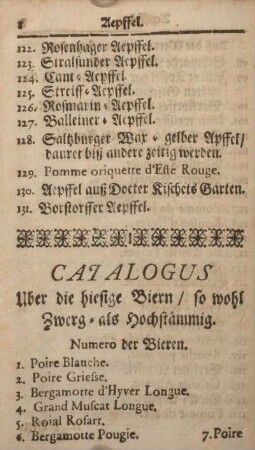 8 Aepffel.
122. Rosenhager Aepffel.
123. Stralsunder Aepffel.
124. Cant-Aepffel
125. Streiff-Aepffel.
126. Rosmarin-Aepffel.
127. Balleiner-Aepffel.
128. Saltzburger Wax-gelber Apffel/
dauret biß andere zeitig werden.
129. Pomme oriquette d'Esté Rouge.
130. Aepffel auß Docter Kischets Garten.
131. Borstorffer Aepffel.
CATALOGUS
Uber die hiesige Biern / so wohl
Zwerg-als Hochstämmig.
Numero der Bieren.
1. Poire Blanche.
2. Poire Griesse.
3. Bergamotte d'Hyver Longue.
4. Grand Muscat Longue.
5. Roial Rosart.
6. Bergamotte Pougie. 7. Poire